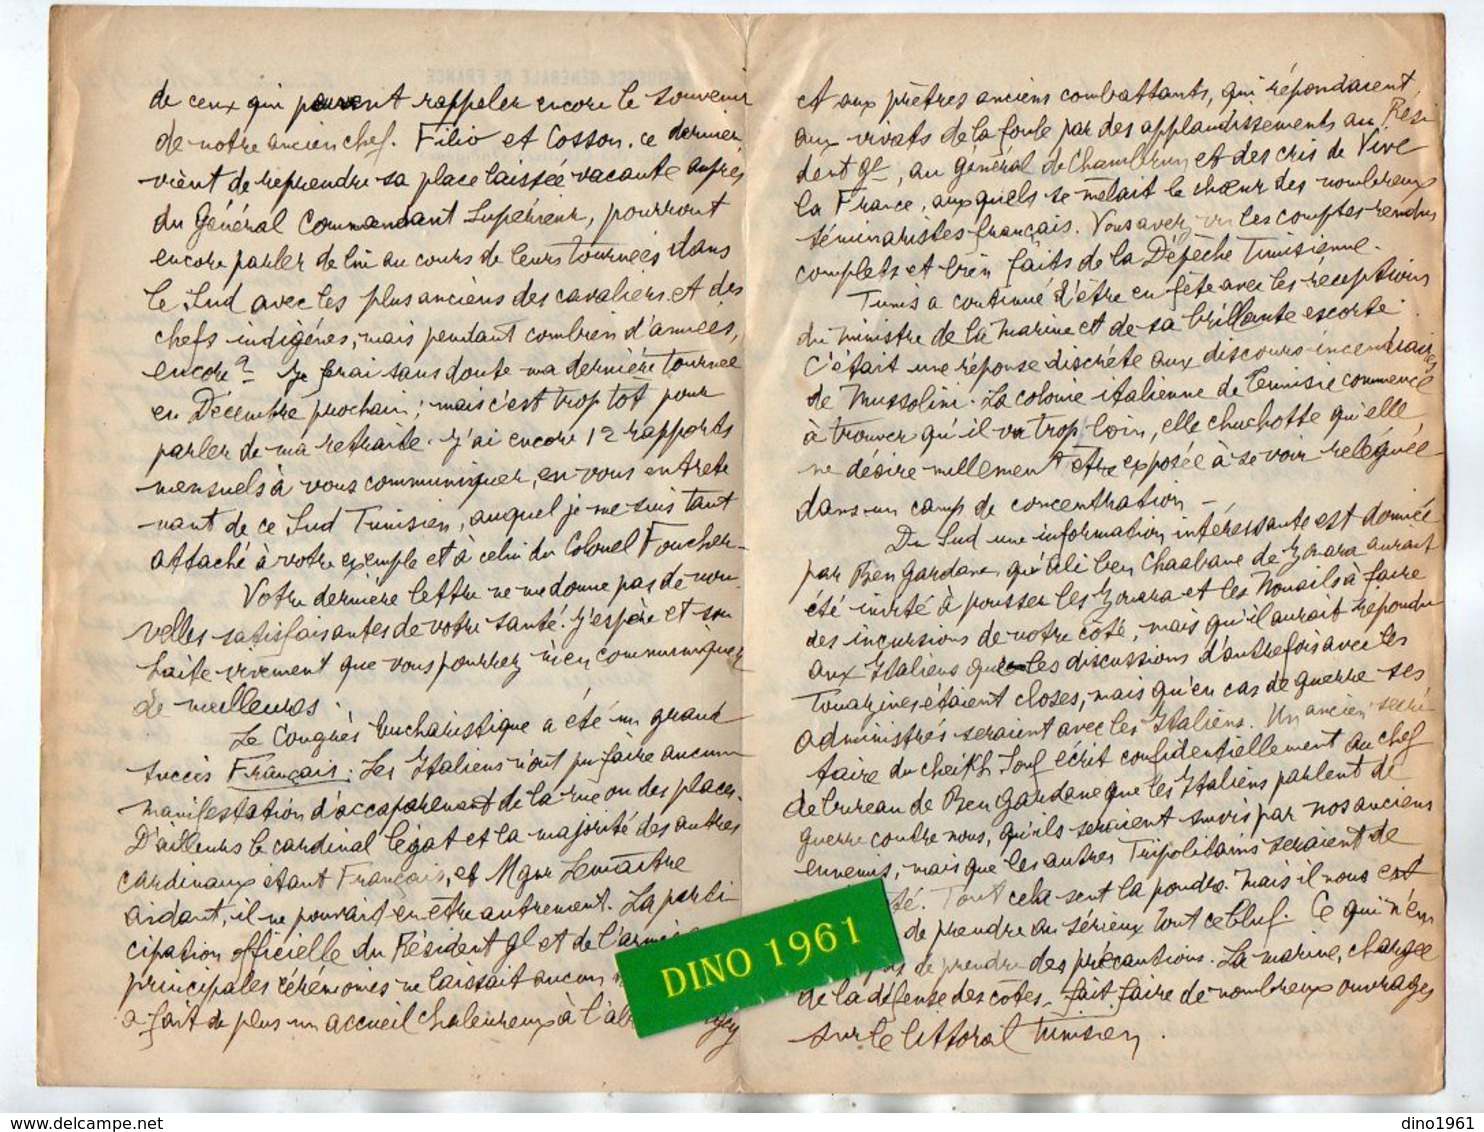 de ceux qui peuvent rappeler encore le souvenir
de notre ancien chef. Filio et Cosson, ce dernier
vient de reprendre sa place laissée vacante auprès
du Général Commandant Supérieur, pourront
encore parler de lui au cours de leurs tournées dans
le Sud avec les plus anciens des cavaliers et des
chefs indigénes, mais pendant combien d'années,
encore? Je ferai sans doute ma dernière tournée
en Décembre prochain; mais c'est trop tôt pour
parler de ma retraite. J'ai encore 12 rapports
mensuels à vous communiquer, en vous entrete
nant de ce Sud Tunisien, auquel je me suis tant
attaché à votre exemple et à celui du Colonel Foucher-
Votre dernière lettre ne me donne pas de nou-
velles satisfaisantes de votre santé. J'espère et sou
haite vivement que vous pourrez m'en communiquer
de meilleures.
Le Congrès Eucharistique a été un grand
succès Français. Les Italiens n'ont pu faire aucune
manifestation d'accaparement de la rue ou des places.
D'ailleurs le cardinal légat et la majorité des autres
cardinaux étant Français, et Mgnr Lemaître
aidant, il ne pouvait en être autrement. La parti
cipation officielle du Résident Gl et de l'armée
principales cérémonies ne laissait aucun
a fait de plus un accueil chaleureux à
et aux prêtres anciens combattants, qui répondaient
aux vivats de la foule par des applaudissements au Rési
dent Gl, au général de Chambrun et des cris de Vive
la France, auxquels se mêlait le chœur des nombreux
séminaristes français. Vous avez vu les comptes rendus
complets et bien faits de la Dépêche Tunisienne.
Tunis a continué d'être en fête avec les réceptions
du ministre de la Marine et de sa brillante escorte.
C'était une réponse discrète aux discours incendiaires
de Mussolini. La colonie italienne de Tunisie commence
à trouver qu'il va trop loin, elle chuchotte qu'elle
ne désire nullement être exposée à se voir reléguée
dans un camp de concentration -
Du Sud une information intéressante est donnée
par Ben Gardane, qu'Ali ben Chaabane de Zouara aurait
été invité à pousser les Zouara et les Nouails à faire
des incursions de notre côté, mais qu'il aurait répondu
aux Italiens que les discussions d'autrefois avec les
Touazines étaient closes, mais qu'en cas de guerre ses
administrés seraient avec les Italiens. Un ancien secré
taire du cheikh Souf écrit confidentiellement au chef
de bureau de Ben Gardane que les Italiens parlent de
guerre contre nous, qu'ils seraient suivis par nos anciens
ennemis, mais que les autres Tripolitains seraient de
té. Tout cela sent la poudre. Mais il nous est
de prendre au sérieux tout ce bluf. Ce qui n'em
pas de prendre des précautions. La marine, chargée
de la défense des côtes, fait faire de nombreux ouvrages
sur le littoral tunisien.
DINO 1961
dino1961